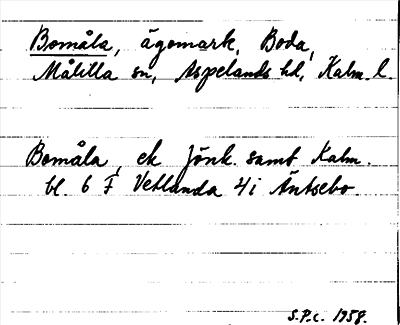 Bomåla, ägomark, Boda,
Målilla sn, Aspelands hd, Kalm. l.
Bomåla, ek Jönk. samt Kalm.
bl. 6 F Vetlanda 4i Äntsebo.
S.P.C. 1958.